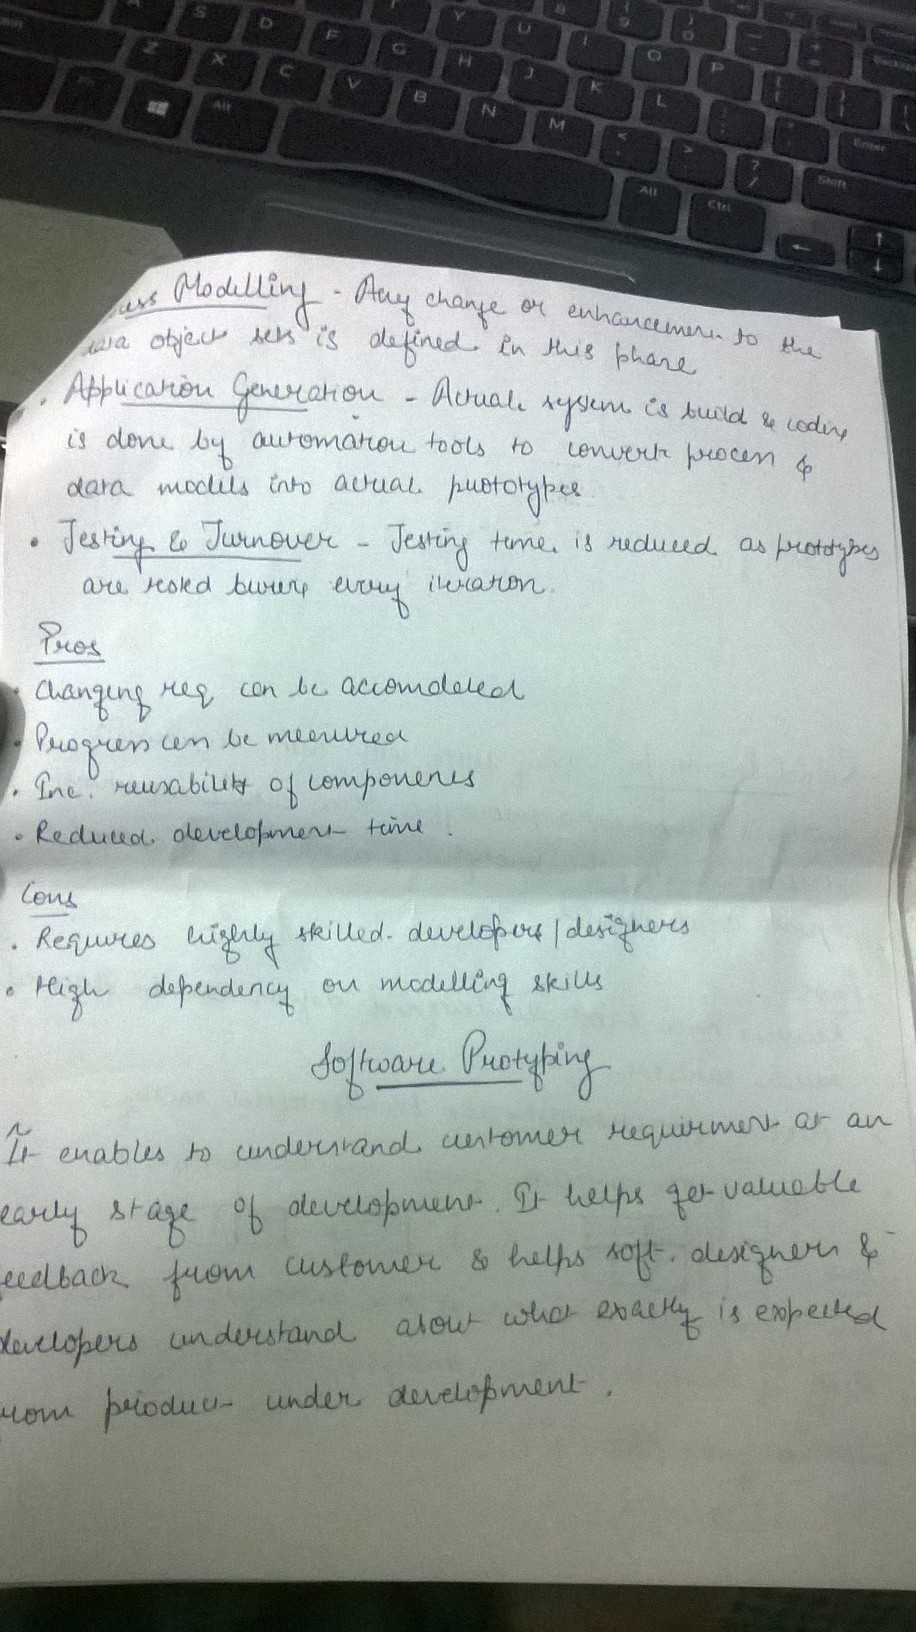 ess Modelling - Any change or enhancement to the
data object sets is defined in this phase
. Application Generation - Actual system is build & coding
is done by automation tools to convert process &
data models into actual prototypes
• Testing & Turnover - Testing time is reduced as prototypes
are tested every iteration.
Pros
• Changing req can be accomdated
• Progress can be measured
• Inc. reusability of components
• Reduced development time.
Cons
. Requires highly skilled developers / designers
• High dependency on modelling skills
Software Protyping
It enables to understand customer requirment at an
early stage of development. It helps get valuable
eedback from customer & helps soft. designers &
developers understand about what exactly is expected
rom product under development.